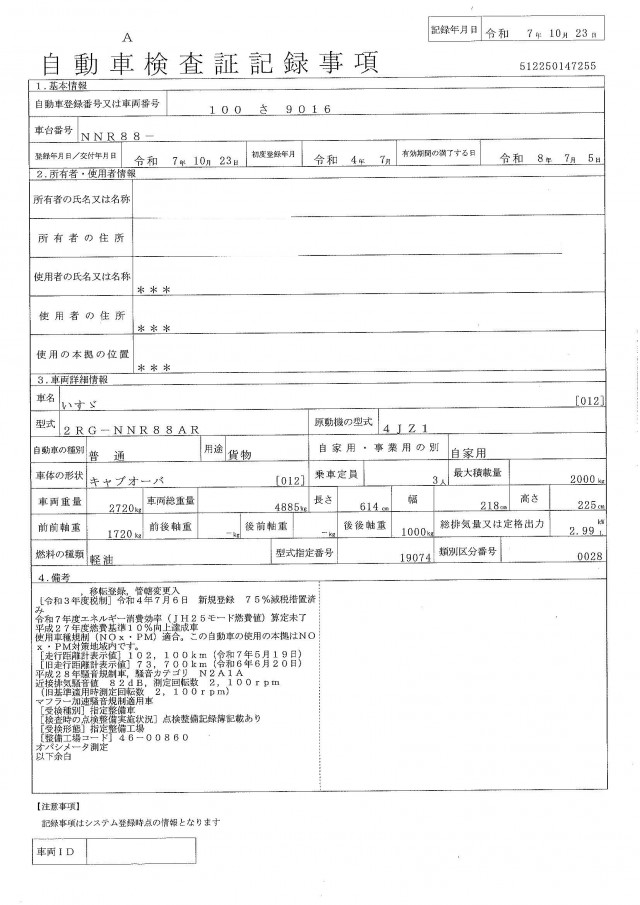 記録年月日 令和 7年 10月 23日
A
自動車検査証記録事項 512250147255
1.基本情報
自動車登録番号又は車両番号 100 さ 9016
車台番号 NNR88-
登録年月日/交付年月日 令和 7年 10月 23日 初度登録年月 令和 4年 7月 有効期間の満了する日 令和 8年 7月 5日
2.所有者・使用者情報
所有者の氏名又は名称
所有者の住所
使用者の氏名又は名称 ***
使用者の住所 ***
使用の本拠の位置 ***
3.車両詳細情報
車名 いすゞ [012]
型式 2RG-NNR88AR 原動機の型式 4JZ1
自動車の種別 普通 用途 貨物 自家用・事業用の別 自家用
車体の形状 キャブオーバ [012] 乗車定員 3人 最大積載量 2000kg
車両重量 2720kg 車両総重量 4885kg 長さ 614cm 幅 218cm 高さ 225cm
前前軸重 1720kg 前後軸重 -kg 後前軸重 -kg 後後軸重 1000kg 総排気量又は定格出力 2.99 kW L
燃料の種類 軽油 型式指定番号 19074 類別区分番号 0028
4.備考
,移転登録,管轄変更入
[令和3年度税制]令和4年7月6日 新規登録 75%減税措置済
み
令和7年度エネルギー消費効率(JH25モード燃費値)算定未了
平成27年度燃費基準10%向上達成車
使用車種規制(NOx・PM)適合。この自動車の使用の本拠はNO
x・PM対策地域内です。
[走行距離計表示値]102,100km(令和7年5月19日)
[旧走行距離計表示値]73,700km(令和6年6月20日)
平成28年騒音規制車,騒音カテゴリ N2A1A
近接排気騒音値 82dB,測定回転数 2,100rpm
(旧基準適用時測定回転数 2,100rpm)
マフラー加速騒音規制適用車
[受検種別]指定整備車
[検査時の点検整備実施状況]点検整備記録簿記載あり
[受検形態]指定整備工場
[整備工場コード]46-00860
オパシメータ測定
以下余白
【注意事項】
記録事項はシステム登録時点の情報となります
車両ID